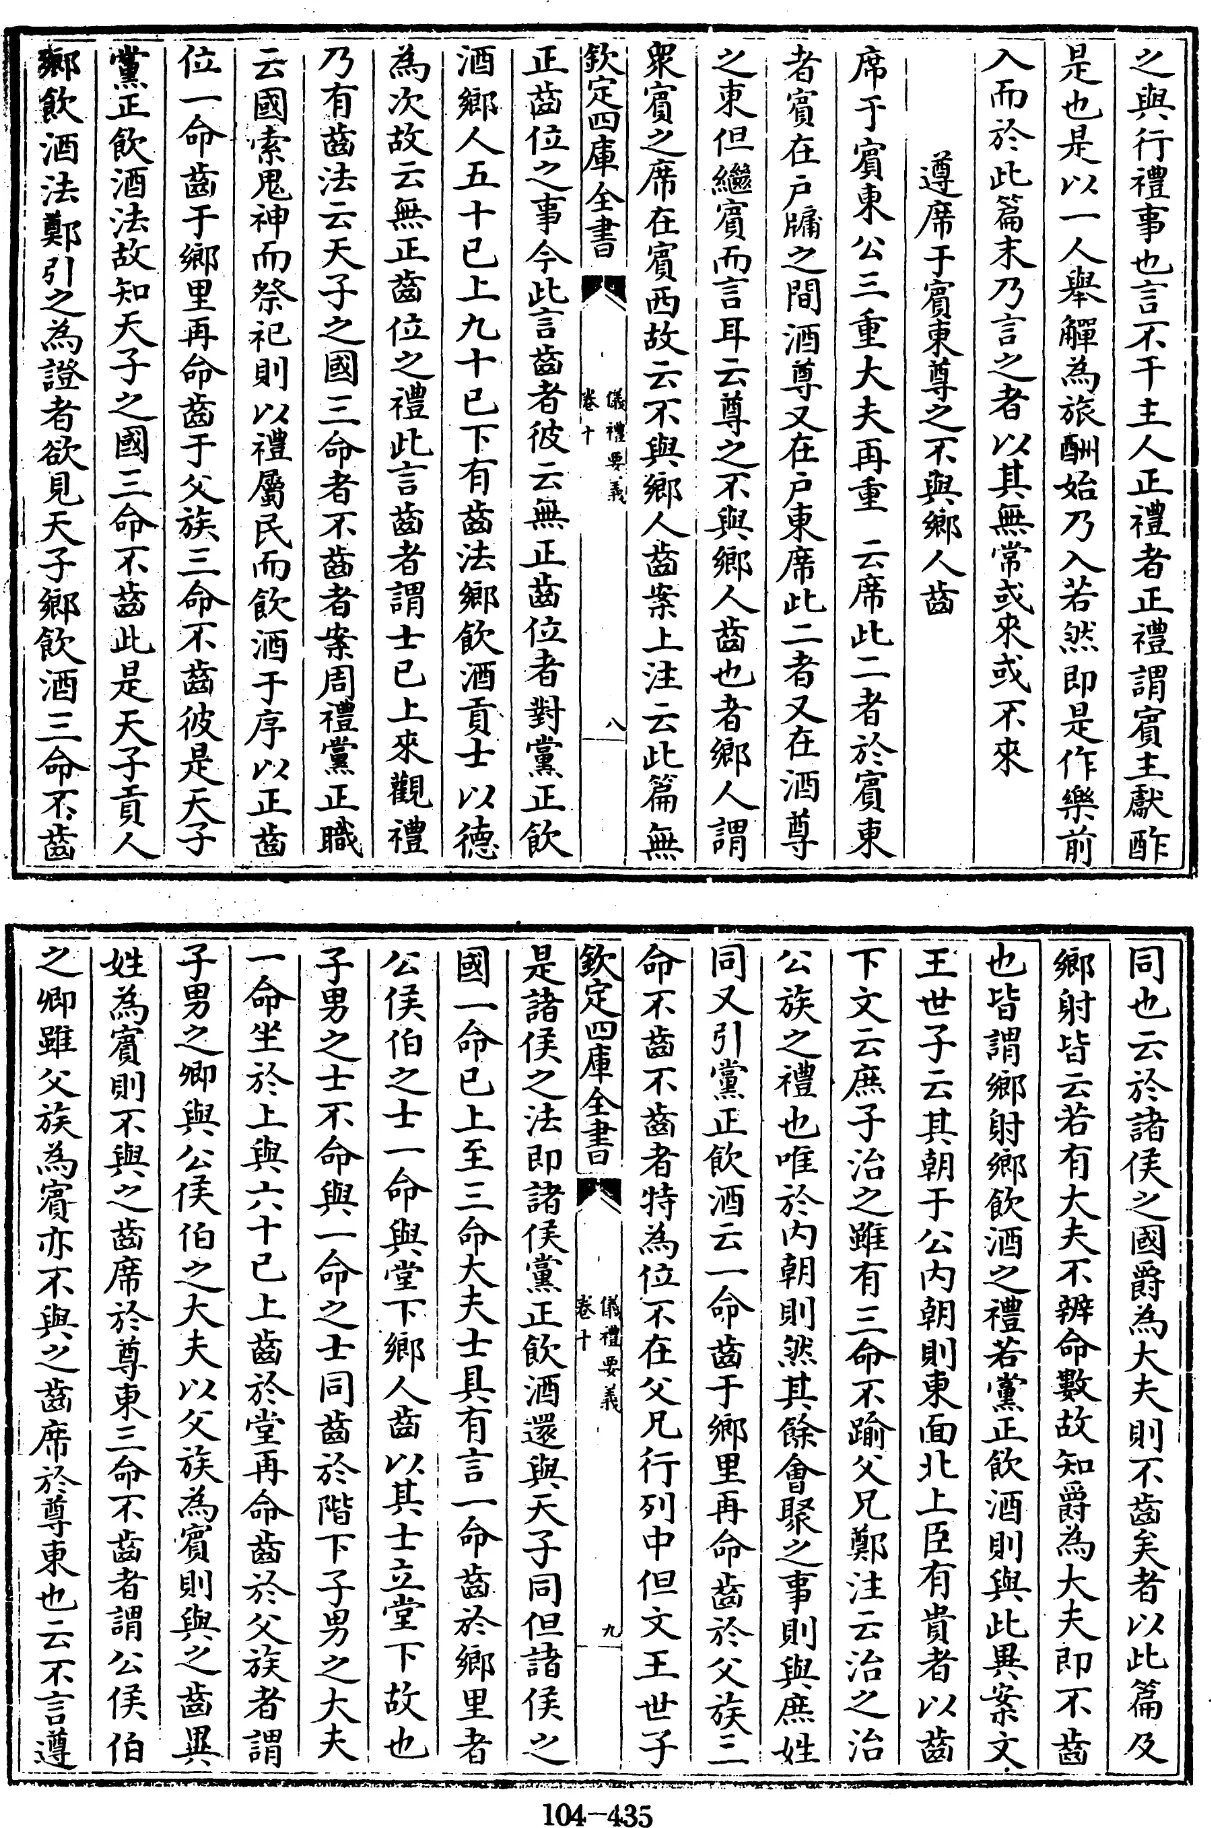 之與行禮事也言不干主人正禮者正禮謂賓主獻酢
是也是以一人舉觶為旅酬始乃入若然即是作樂前
入而於此篇末乃言之者以其無常或來或不來
遵席于賓東尊之不與鄉人齒
席于賓東公三重大夫再重 云席此二者於賓東
者賓在戶牖之間酒尊又在戶東席此二者又在酒尊
之東但繼賓而言耳云尊之不與鄉人齒也者鄉人謂
衆賓之席在賓西故云不與鄉人齒案上注云此篇無
欽定四庫全書
儀禮要義
卷十
八
正齒位之事今此言齒者彼云無正齒位者對黨正飲
酒鄉人五十已上九十已下有齒法鄉飲酒貢士以德
為次故云無正齒位之禮此言齒者謂士已上來觀禮
乃有齒法云天子之國三命者不齒者案周禮黨正職
云國索鬼神而祭祀則以禮屬民而飲酒于序以正齒
位一命齒于鄉里再命齒于父族三命不齒彼是天子
黨正飲酒法故知天子之國三命不齒此是天子貢人
鄉飲酒法鄭引之為證者欲見天子鄉飲酒三命不齒
同也云於諸侯之國爵為大夫則不齒矣者以此篇及
鄉射皆云若有大夫不辨命數故知爵為大夫即不齒
也皆謂鄉射鄉飲酒之禮若黨正飲酒則與此異案文
王世子云其朝于公內朝則東面北上臣有貴者以齒
下文云庶子治之雖有三命不踰父兄鄭注云治之治
公族之禮也唯於內朝則然其餘會聚之事則與庶姓
同又引黨正飲酒云一命齒于鄉里再命齒於父族三
命不齒不齒者特為位不在父兄行列中但文王世子
欽定四庫全書
儀禮要義
卷十
九
是諸侯之法即諸侯黨正飲酒還與天子同但諸侯之
國一命已上至三命大夫士具有言一命齒於鄉里者
公侯伯之士一命與堂下鄉人齒以其士立堂下故也
子男之士不命與一命之士同齒於階下子男之大夫
一命坐於上與六十已上齒於堂再命齒於父族者謂
子男之卿與公侯伯之大夫以父族為賓則與之齒異
姓為賓則不與之齒席於尊東三命不齒者謂公侯伯
之卿雖父族為賓亦不與之齒席於尊東也云不言遵
104-435